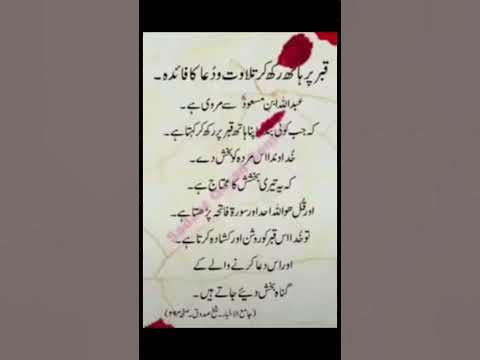 قبر پر ہاتھ رکھ کر تلاوت و دُعا کا فائدہ ۔
عبداللہ ابنِ مسعودؓ سے مروی ہے ۔
کہ جب کوئی اپنا ہاتھ قبر پر رکھ کر کہتا ہے ۔
خُداوندا اس مردہ کو بخش دے ۔
کہ یہ تیری بخشش کا محتاج ہے ۔
اور قُل ھو اللہ احد اور سورۃ فاتحہ پڑھتا ہے ۔
تو خُدا اس قبر کو روشن اور کشادہ کرتا ہے ۔
اور اس دعا کرنے والے کے
گناہ بخش دیئے جاتے ہیں ۔
(جامع الاخبار ۔ شیخ صدوق ۔ صفحہ ۲۹۳)